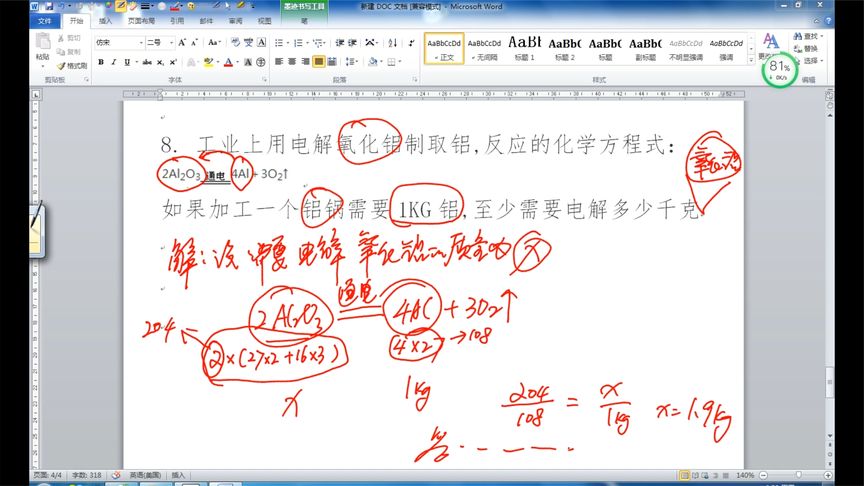 墨迹书写工具
新建 DOC 文档 [兼容模式] - Microsoft Word
文件 开始 插入 页面布局 引用 邮件 审阅 视图 笔
剪切
复制
粘贴 格式刷
仿宋 二号
AaBbCcDd AaBbCcDd AaBb AaBbC AaBbC AaBbC AaBbCcDd AaBbCcDd
正文 无间隔 标题 1 标题 2 标题 副标题 不明显强调 强调
查找
替换
选择
81%
0K/s
剪贴板 字体 段落 样式 编辑
8. 工业上用电解氧化铝制取铝,反应的化学方程式:
2Al₂O₃ 通电 4Al + 3O₂↑
氧化铝
如果加工一个铝锅需要 1KG 铝,至少需要电解多少千克
解:设需要电解氧化铝的质量为x
通电
2Al2O3 4Al + 3O2↑
204
2×(27×2+16×3) 4×27 →108
x 1kg
204/108 = x/1kg x=1.9kg
答.
页面: 4/4 字数: 318 英语(美国) 插入 140%